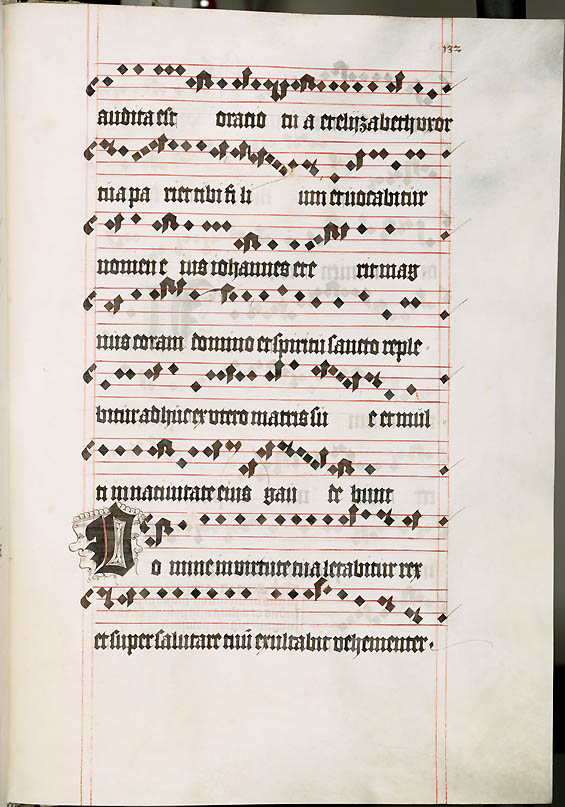 132
audita est oratio tu a et elyzabeth uxor
tua pa riet tibi fi li um et vocabitur
nomen e ius iohannes e re rit mag
nus coram domino et spiritu sancto reple
bitur adhuc ex utero matris su e et mul
ti in nativitate eius gau de bunt
Do mine in virtute tua letabitur rex
et super salutare tuū exultabit vehementer.